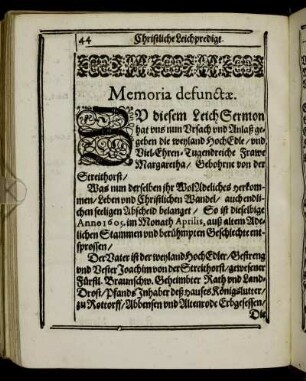 44 Christliche Leichpredigt.
Memoria defunctæ.
ZU diesem Leich Sermon
hat vns nun Vrsach vnd Anlaß ge-
geben die weyland HochEdle / vnd
Viel-Ehren-Tugendreiche Frawe
Margaretha / Gebohrne von der
Streithorst /
Was nun derselben jhr WolAdeliches herkom-
men / Leben vnd Christlichen Wandel / auch endli-
chen seligen Abscheid belanget / So ist dieselbige
Anno 1605. im Monath Aprilis, auß altem Ade-
lichen Stammen vnd berühmpten Geschlechte ent-
sprossen /
Der Vater ist der weyland HochEdler / Gestreng
vnd Vester Joachim von der Streithorst / gewesener
Fürstl. Braunschw. Geheimbter Rath vnd Land-
Drost / Pfands Inhaber deß Hauses Königslutter /
zu Rottorff / Abbensen vnd Altenrode Erbgesessen /
Die